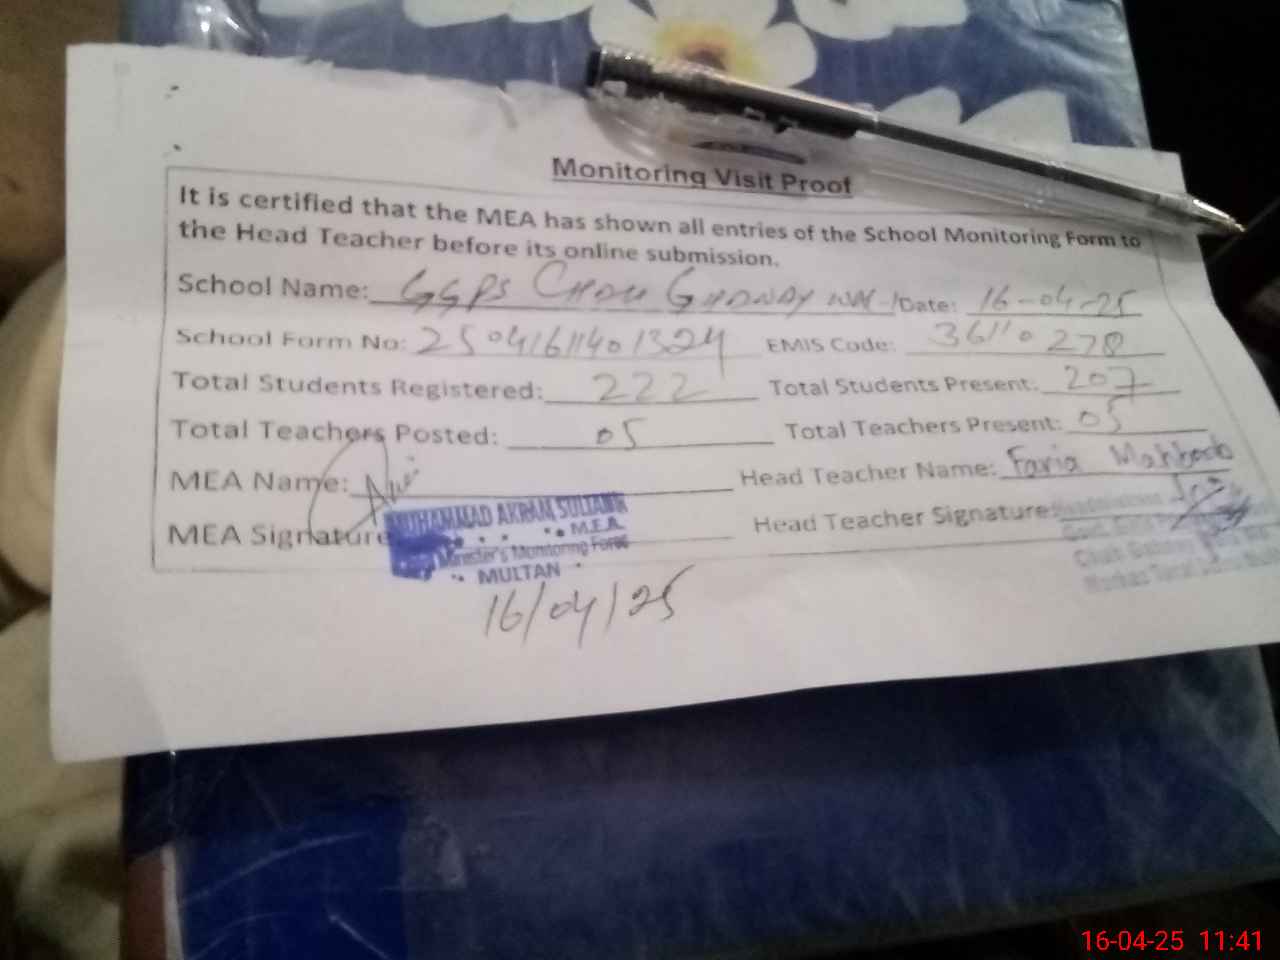 Monitoring Visit Proof
It is certified that the MEA has shown all entries of the School Monitoring Form to
the Head Teacher before its online submission.
School Name: GGPS Chah Date: 16-04-25
School Form No: 25041611401324 EMIS Code: 36110278
Total Students Registered: 222 Total Students Present: 207
Total Teachers Posted: 05 Total Teachers Present: 05
MEA Name: Head Teacher Name: Faria Mahboob
MEA Signature Head Teacher Signature
MUHAMMAD AKRAM SULTANI
M.E.A.
Minister's Monitoring Force
MULTAN
16/04/25
16-04-25 11:41